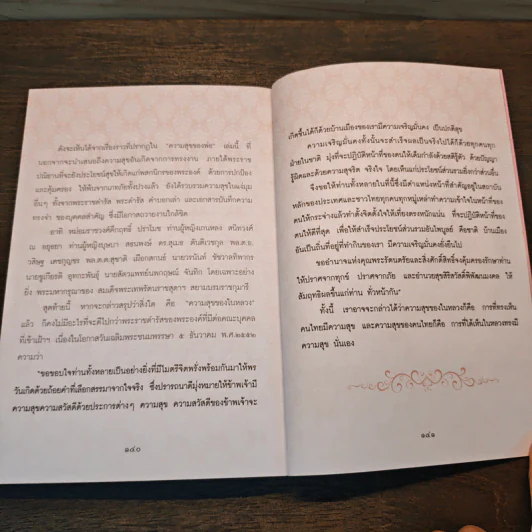 ดังจะเห็นได้จากเรื่องราวที่ปรากฏใน "ความสุขของพ่อ" เล่มนี้ ที่
นอกจากจะนำเสนอถึงความสุขอันเกิดจากการทรงงาน ภายใต้พระราช
ปณิธานที่จะยังประโยชน์สุขให้เกิดแก่พสกนิกรของพระองค์ ด้วยการปกป้อง
และคุ้มครอง ให้พ้นจากภยันตรายทั้งปวงแล้ว ยังได้รวบรวมความสุขในแง่มุม
อื่นๆ ทั้งจากพระราชดำรัส พระดำรัส คำบอกเล่า และเอกสารบันทึกความ
ทรงจำ ของบุคคลสำคัญ ซึ่งมีโอกาสถวายงานใกล้ชิด
อาทิ หม่อมราชวงศ์คึกฤทธิ์ ปราโมช ท่านผู้หญิงเกนหลง สนิทวงศ์
ณ อยุธยา ท่านผู้หญิงบุษบา สธนพงษ์ ดร.สุเมธ ตันติเวชกุล พล.ต.อ.
วสิษฐ เดชกุญชร พล.ต.ต.สุชาติ เผือกสกนธ์ นายวรนันท์ ชัชวาลทิพากร
นายชูเกียรติ อุทกะพันธุ์ นายสัตวแพทย์นพกฤษณ์ จันทิก โดยเฉพาะอย่าง
ยิ่ง พระมหากรุณาของ สมเด็จพระเทพรัตนราชสุดาฯ สยามบรมราชกุมารี
สุดท้ายนี้ หากจะกล่าวสรุปว่าสิ่งใด คือ "ความสุขของในหลวง"
แล้ว ก็คงไม่มีอะไรที่จะดีไปกว่าพระราชดำรัสของพระองค์ที่มีต่อคณะบุคคล
ที่เข้าเฝ้าฯ เนื่องในโอกาสวันเฉลิมพระชนมพรรษา ๕ ธันวาคม พ.ศ.๒๕๕๒
ความว่า
"ขอขอบใจท่านทั้งหลายเป็นอย่างยิ่งที่มีไมตรีจิตพรั่งพร้อมกันมาให้พร
วันเกิดด้วยถ้อยคำที่เลือกสรรมาจากใจจริง ซึ่งปรารถนามุ่งหมายให้ข้าพเจ้ามี
ความสุขความสวัสดีด้วยประการต่างๆ ความสุข ความสวัสดีของข้าพเจ้าจะ
๑๔๐
เกิดขึ้นได้ก็ด้วยบ้านเมืองของเรามีความเจริญมั่นคง เป็นปกติสุข
ความเจริญมั่นคงทั้งนั้นจะสำเร็จผลเป็นจริงไปได้ก็ด้วยทุกคนทุก
ฝ่ายในชาติ มุ่งที่จะปฏิบัติหน้าที่ของตนให้เต็มกำลังด้วยสติรู้ตัว ด้วยปัญญา
รู้ผิดและด้วยความสุจริต จริงใจ โดยเห็นแก่ประโยชน์ส่วนรวมยิ่งกว่าส่วนอื่น
จึงขอให้ท่านทั้งหลายในที่นี้ซึ่งมีตำแหน่งหน้าที่สำคัญอยู่ในสถาบัน
หลักของประเทศและชาวไทยทุกคนทุกหมู่เหล่าทำความเข้าใจในหน้าที่ของ
ตนให้กระจ่างแล้วทำตั้งจิตตั้งใจให้เที่ยงตรงหนักแน่น ที่จะปฏิบัติหน้าที่ของ
ตนให้ดีที่สุด เพื่อให้สำเร็จประโยชน์ส่วนรวมอันไพบูลย์ คือชาติ บ้านเมือง
อันเป็นถิ่นที่อยู่ที่ทำกินของเรา มีความเจริญมั่นคงยั่งยืนไป
ขออำนาจแห่งคุณพระรัตนตรัยและสิ่งศักดิ์สิทธิ์จงคุ้มครองรักษาท่าน
ให้ปราศจากทุกข์ ปราศจากภัย และอำนวยสุขสิริสวัสดิ์พิพัฒนมงคล ให้
สัมฤทธิผลขึ้นแก่ท่าน ทั่วหน้ากัน"
ทั้งนี้ เราอาจจะกล่าวได้ว่าความสุขของในหลวงก็คือ การที่ทรงเห็น
คนไทยมีความสุข และความสุขของคนไทยก็คือ การที่ได้เห็นในหลวงทรงมี
ความสุข นั่นเอง
๑๔๑